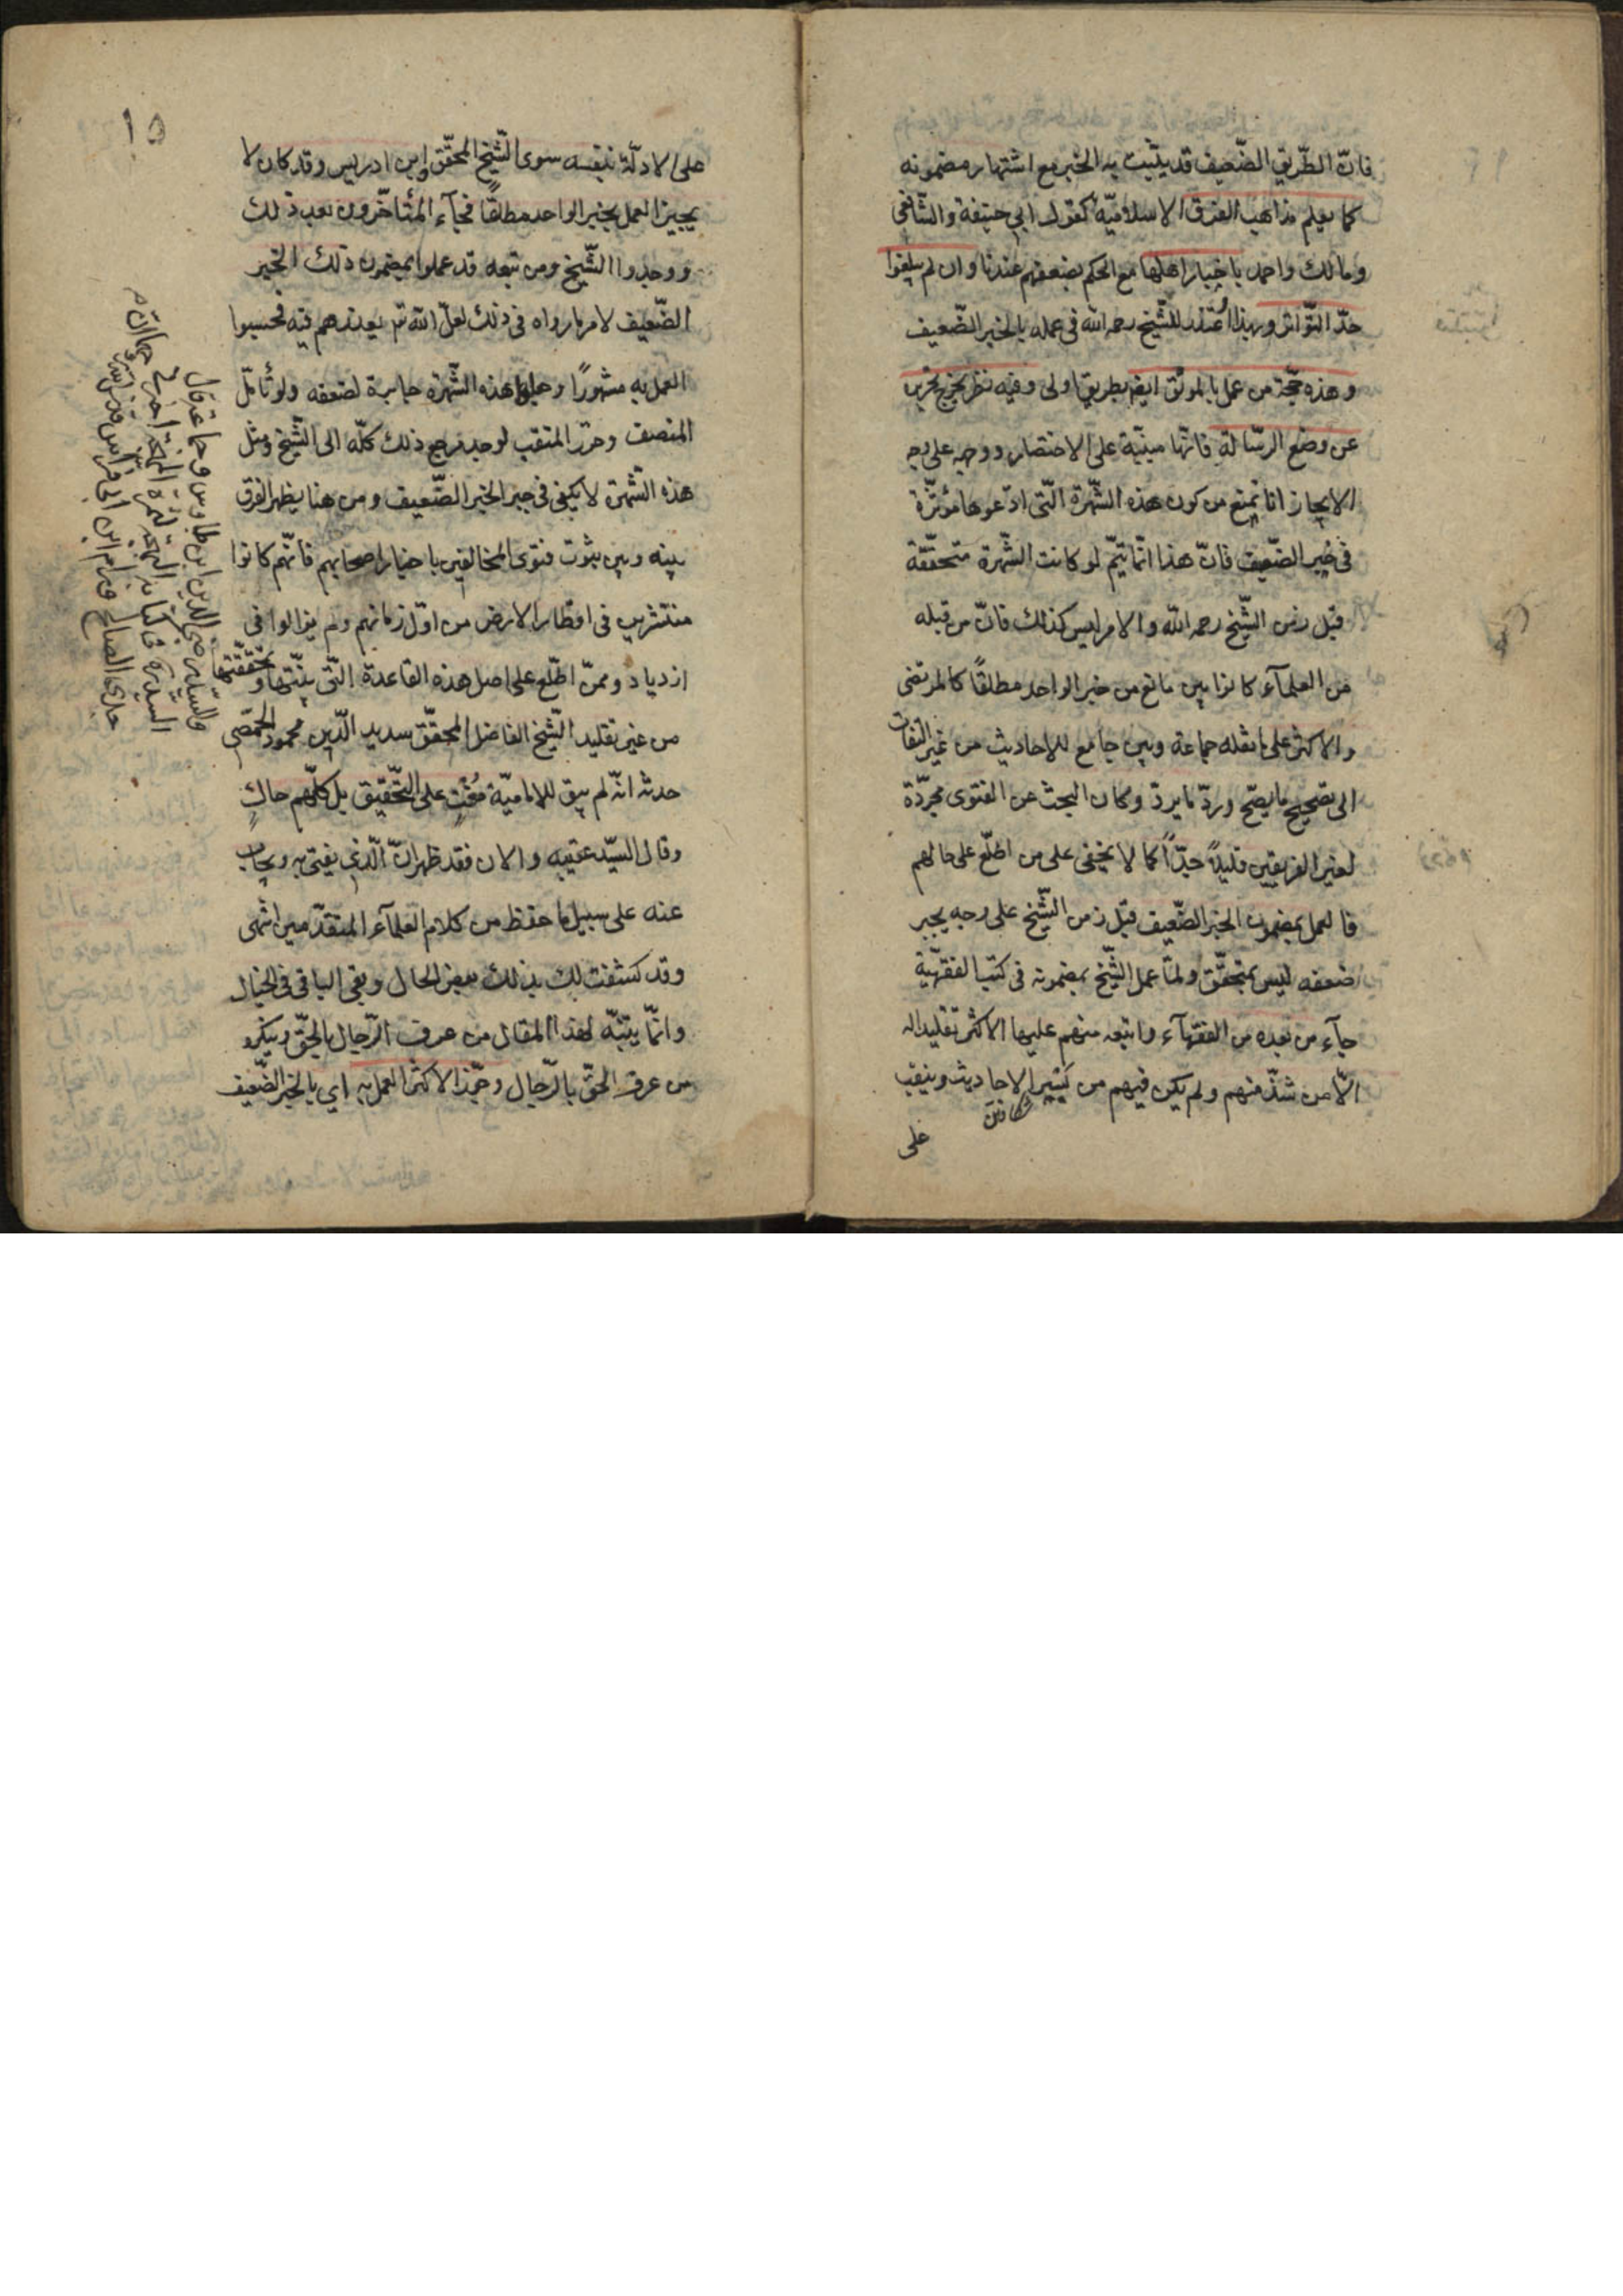 فانّ الطّريق الضّعيف قد يثبت به الخبر مع اشتهار مضمونه
كما يعلم مذاهب الفرق الاسلاميّة كقول ابي حنيفة والشّافعى
ومالك واحمد باخبار اهلها مع الحكم بضعفهم عندنا وان لم يبلغوا
حدّ التّواتر وبهذا اُعتذر للشّيخ رحمه الله فى عمله بالخبر الضّعيف
وهذه حجّة من عمل بالموثّق ايضا بطريق اولى وفيه نظر يخرج تحريره
عن وضع الرّسالة فانّها مبنيّة على الاختصار ووجهه على وجه
الايجاز انا نمنع من كون هذه الشّهرة الّتى ادّعوها مؤثّرة
فى جبر الضّعيف فانّ هذا انّما يتمّ لو كانت الشّهرة متحقّقة
قبل زمن الشّيخ رحمه الله والامر ليس كذلك فانّ من قبله
من العلمآء كانوا بين مانع من خبر الواحد مطلقًا كالمرتضى
والاكثر على ما نقله جماعة وبين جامع للاحاديث من غير التفات
الى تصحيح ما يصحّ وردّ ما يردّ وكان البحث عن الفتوى مجرّدة
لغير الفريقين قليلاً جدّاً كما لا يخفى على من اطّلع على حالهم
فالعمل بمضمون الخبر الضّعيف قبل زمن الشّيخ على وجه يجبر
ضعفه ليس بمتحقّق ولمّا عمل الشّيخ بمضمونه فى كتبه الفقهيّة
جآء من بعده من الفقهآء واتبعه منهم عليها الاكثر تقليدا له
الّا من شذّ منهم ولم يكن فيهم من يسبر الاحاديث وينقب
على
١٥
على الادلّة بنفسه سوى الشّيخ المحقّق وابن ادريس وقد كان لا
يجيز العمل بخبر الواحد مطلقًا فجآء المتأخّرون بعد ذلك
ووجدوا الشّيخ ومن تبعه قد عملوا بمضمون ذلك الخبر
الضّعيف لامر ما رواه فى ذلك لعلّ الله تم يعذرهم فيه فحسبوا
العمل به مشهورًا وجعلوا هذه الشّهرة جابرة لضعفه ولو تأمّل
المنصف وحرّر المنقب لوجد مرجع ذلك كلّه الى الشّيخ ومثل
هذه الشّهرة لا يكفى فى جبر الخبر الضّعيف ومن هنا يظهر الفرق
بينه وبين ثبوت فتوى المخالفين باخبار اصحابهم فانّهم كانوا
منتشرين فى اقطار الارض من اوّل زمانهم ولم يزالوا فى
ازدياد وممّن اطّلع على اصل هذه القاعدة الّتى بيّنتها وتحقّقتها
من غير تقليد الشّيخ الفاضل المحقّق سديد الّدين محمود الحمّصى
حدثه انّه لم يبق للاماميّة مُفتٍ على التّحقيق بل كلّهم حاكٍ
وقال السيّد عقيبه والان فقد ظهر انّ الّذى يفتى به ويجاب
عنه على سبيل ما حفظ من كلام العلمآء المتقدّمين انتهى
وقد كشفت لك بذلك بعض الحال وبقى الباقى فى الخيال
وانّما يتنبّه لهذا المقال من عرف الرّجال بالحقّ وينكره
من عرف الحقّ بالرّجال وحجّة الاكثر العمل به اي بالخبر الضّعيف
والسيّد رضى الدين ابن طاوس وجماعة قال
السيّد ره فى كتابه البهجة لثمرة المهجة اخبرنى
جدى الصالح ورام ابن ابى فراس قدس سره انّ